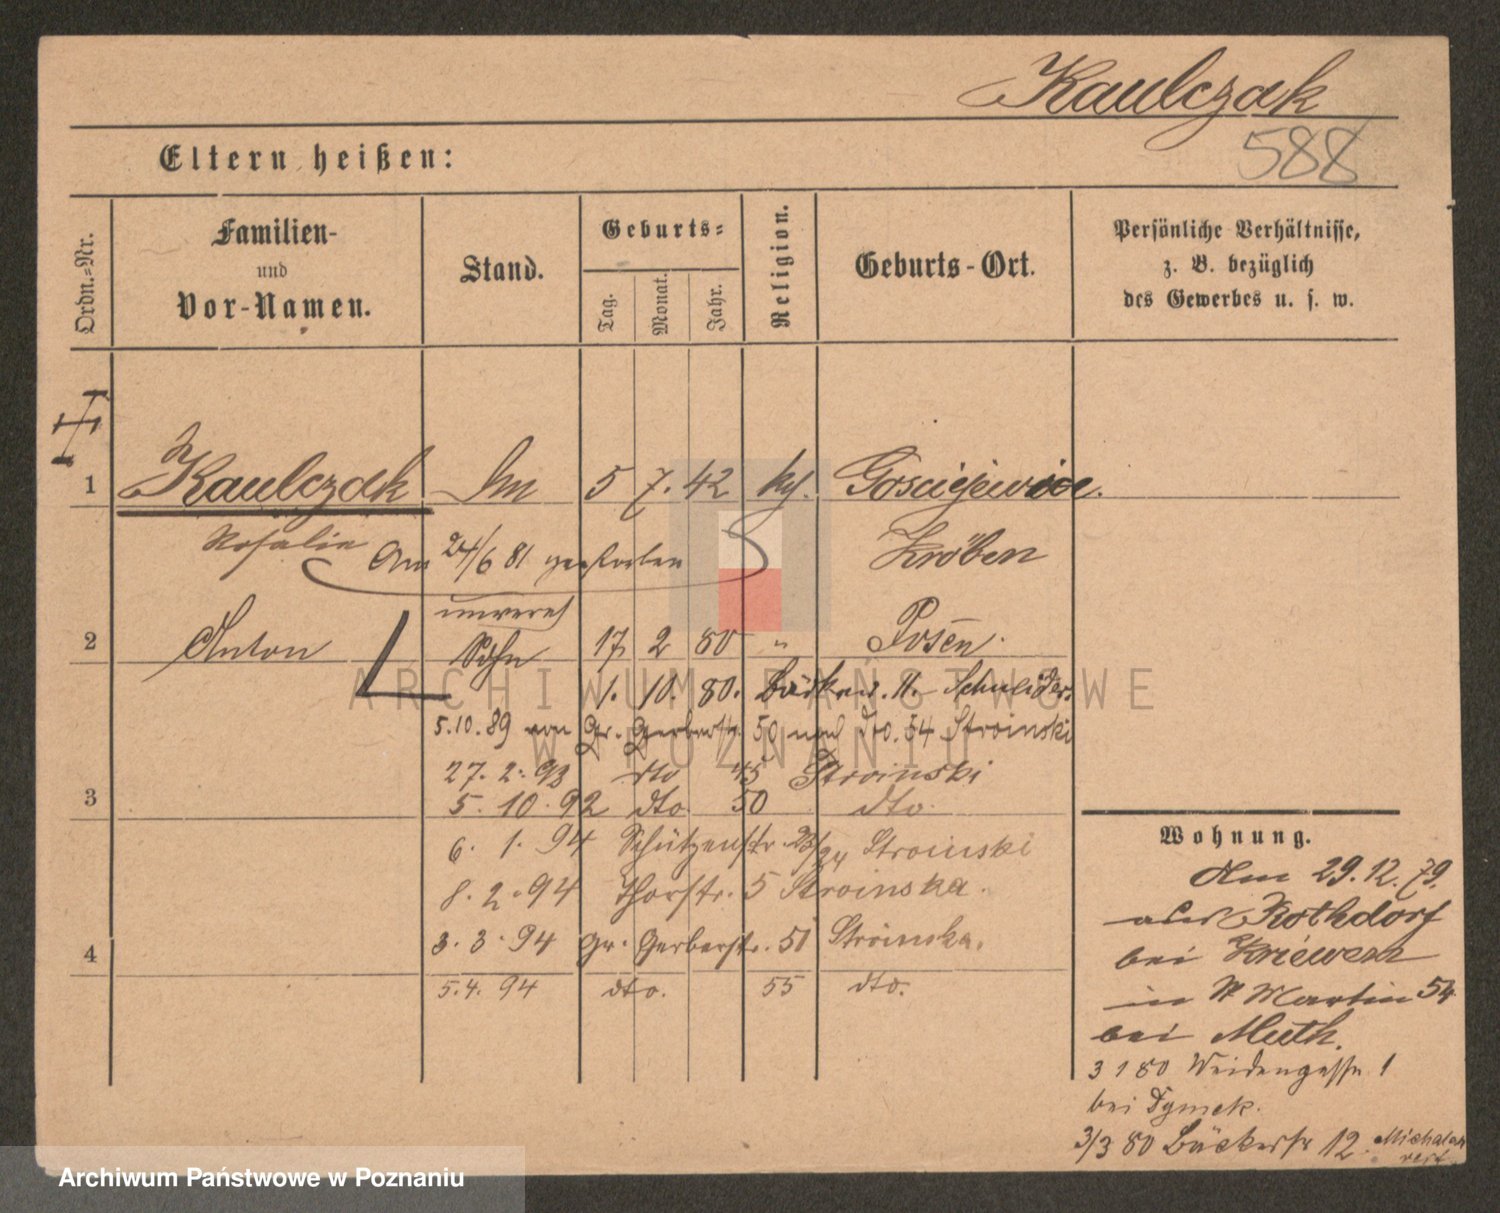 Kaulczak
588
Eltern heißen:
Ordn.-Nr.
Familien-
und
Vor-Namen.
Stand.
Geburts-
Tag.
Monat.
Jahr.
Religion.
Geburts-Ort.
Persönliche Verhältnisse,
z. B. bezüglich
des Gewerbes u. s. w.
1 Kaulczak 5 7. 42 kth. Gosciejewice.
Rosalie Kröben
Am 24/6 81 gestorben
unvereh
2 Anton Sohn 17 2 80 " Posen.
1. 10. 80. Bäckerstr. 11. Schneider.
5.10.89 von Gr. Gerberstr. 50 nach dto. 54 Stroinski
27. 2. 93 dto 45 Stroinski
3 5. 10. 92 dto 50 dto.
6. 1. 94 Schützenstr. 23/24 Stroinski
8. 2. 94 Thorstr. 5 Stroinska.
4 3. 3. 94 Gr. Gerberstr. 51 Stroinska.
5.4. 94 dto. 55 dto.
Wohnung.
Am 29.12.79.
aus Rothdorf
bei Kriewen
in St Martin 54
bei Muth.
3 1 80 Weidengasse 1
bei Dymek.
3/3 80 Bäckerstr 12.
ARCHIWUM PAŃSTWOWE
W POZNANIU
Archiwum Państwowe w Poznaniu